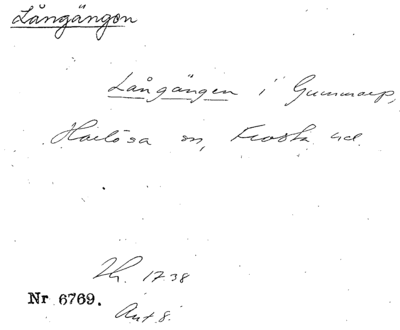 Långängen
Långängen i Gummarp,
Harlösa sn, Frosta hd.
Lh. 1738
Nr 6769.
Akt 8.